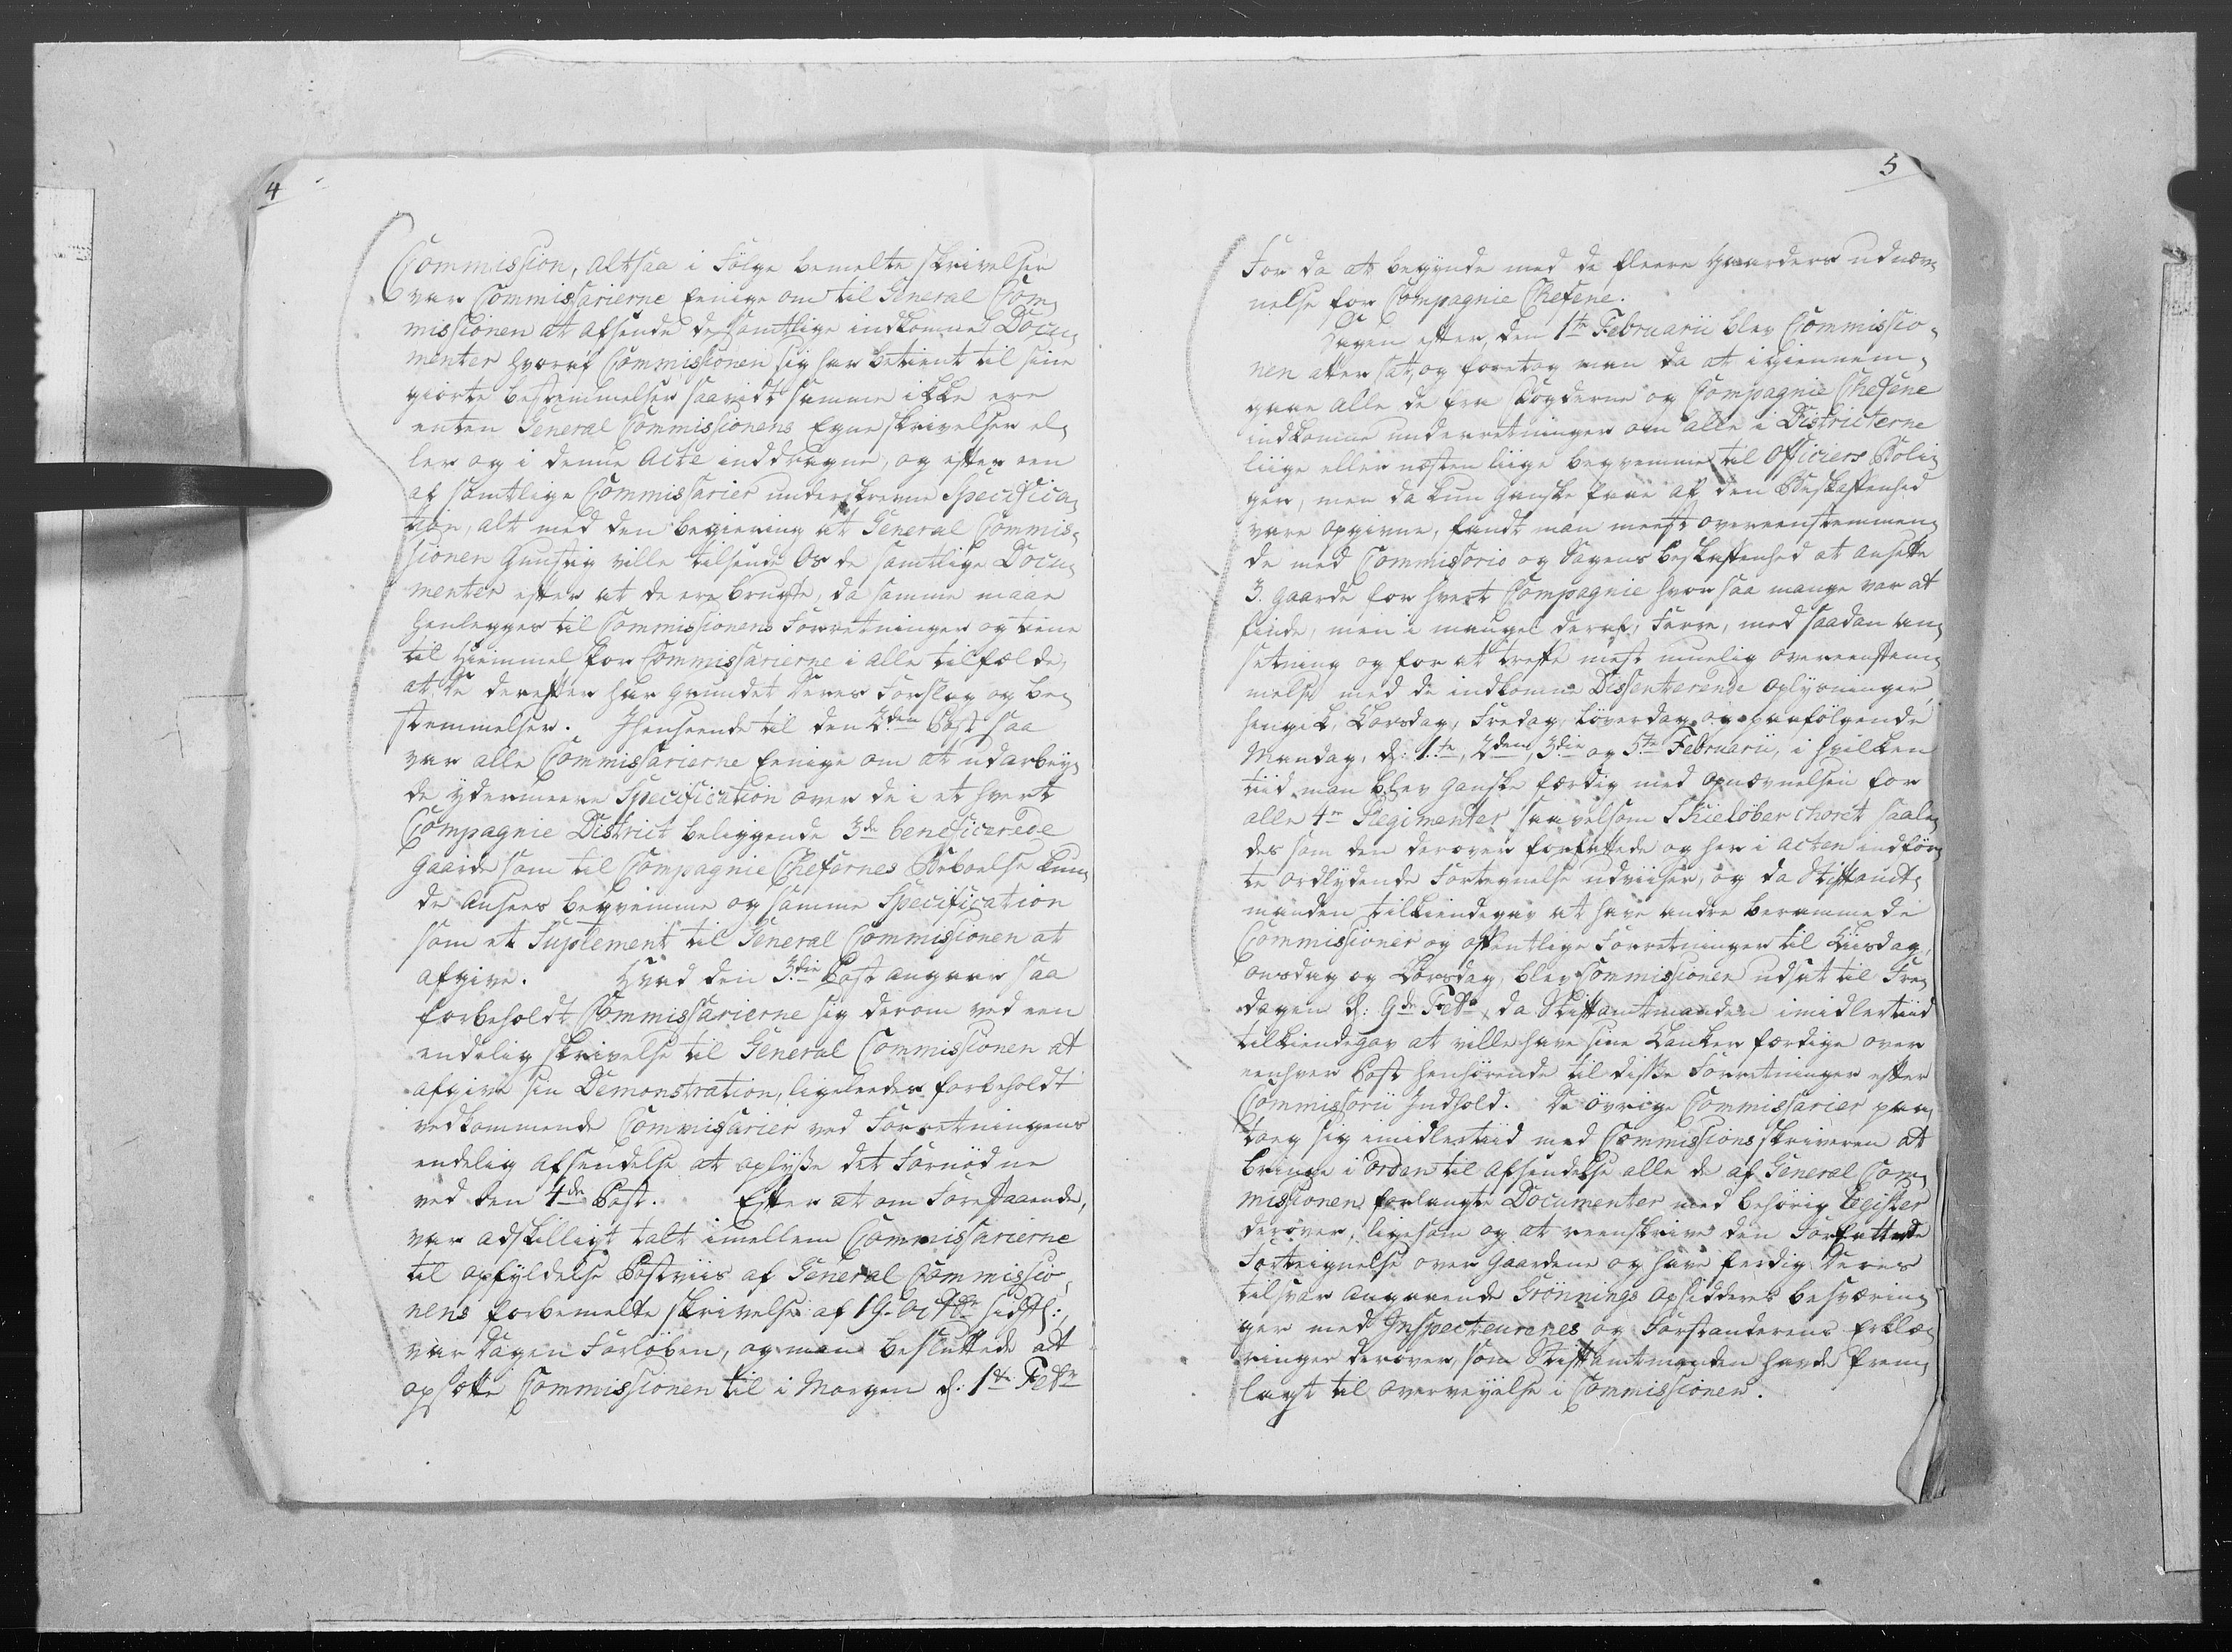 4
Commission, altsaa i Følge bemelte skrivelser
var Commissarierne Eenige om til General Com„
missionen at afsende de samtlige indkomne Docu„
menter hvoraf Commissionen sig har betient til sine
giorte bestemmelser saavidt samme ikke ere
enten General Commissionens Egne skrivelser el„
ler og i denne Acte inddragne, og efter een
af samtlige Commissarier underskreven Specifica„
tion, alt med den begiering at General Commis„
sionen Gunstig ville tilsende Os de samtlige Docu„
menter efter at de ere brugte, da samme maae
henlegges til Commissionens Forretninger og tiene
til Hiemmel for Commissarierne i alle tilfælde,
at de derefter har grundet Deres Forslag og be„
stemmelser. Ihenseende til den 2den Post saa
var alle Commissarierne Eenige om at udarbey„
de ydermeere Specification over de i et hvert
Compagnie District beliggende 3de beneficerede
Gaarde som til Compagnie Chefernes Beboelse kun„
de Ansees beqvemme og samme Specification
som et Suplement til General Commissionen at
afgive. Hvad den 3die Post angaar saa
forbeholdt Commissarierne sig derom ved een
endelig skrivelse til General Commissionen at
afgive sin Demonstration, ligeleedes forbeholdt
vedkommende Commissarier ved Forretningens
endelig Afsendelse at oplysse det Fornødne
ved den 4de Post. Efter at om Forestaaende,
var adskilligt talt imellem Commissarierne
til opfyldelse Postviis af General Commissio„
nens forbemelte skrivelse af 19. Octbr sidstl:,
var Dagen Forløben, og man besluttede at
opsætte Commissionen til i Morgen d: 1te Febr
5
For da at begynde med de fleere Gaarders udnæv„
nelse for Compagnie Chefene.
Dagen efter den 1te Februarii blev Commissio„
nen atter sat, og foretog man da at igiennem„
gaae alle de fra Fogderne og Compagnie Chefene
indkomne underretninger om alle i Districterne
liige eller næsten liige beqvemme til Officiers Boli„
ger, men da kun ganske faae af den Beskaffenhed
vare opgivne, fandt man meest overeenstemmen„
de med Commissorio og Sagens beskaffenhed at ansætte
3. gaarde for hvert Compagnie hvor saa mange var at
finde, men i mangel deraf, Færre, med saadan an„
sætning og for at treffe mest muelig overeenstem„
melse med de indkomne Dissenterende oplysninger,
hengik, Torsdag, Fredag, Løverdag og paafølgende
Mandag, d: 1te, 2den, 3die og 5te Februarii, i hvilken
tiid man blev ganske færdig med opnævnelsen for
alle 4re Regimenter saavelsom Skieløber choret saale„
des som den derover forfattede og her i acten indfør„
te ordlydende Fortegnelse udviiser, og da Stiftamt„
manden tilkiendegav at have andre berammede
Commissioner og offentlige Forretninger til Tiisdag,
onsdag og Torsdag, blev Commissionen udsat til Fre„
dagen d: 9de Febr, da Stiftamtmanden imidlertiid
tilkiendegav at ville have sine Tanker færdige over
eenhver Post henhørende til disse Forretninger efter
Commissorii Indhold. De øvrige Commissarier paa„
tog sig imidlertiid med Commissions skriveren at
bringe i orden til Afsendelse alle de af General Com„
missionen forlangte Documenter med behørig Register
derover, ligesom og at reenskrive den Forfattede
Forteignelse over Gaardene og have ferdig Deres
tilsvar angaaende Grønnings opsidderes besværin„
ger med Inspecteurenes og Forstanderens Erklæ„
ringer derover, som Stiftamtmanden havde Frem„
lagt til overveyelse i Commissionen.